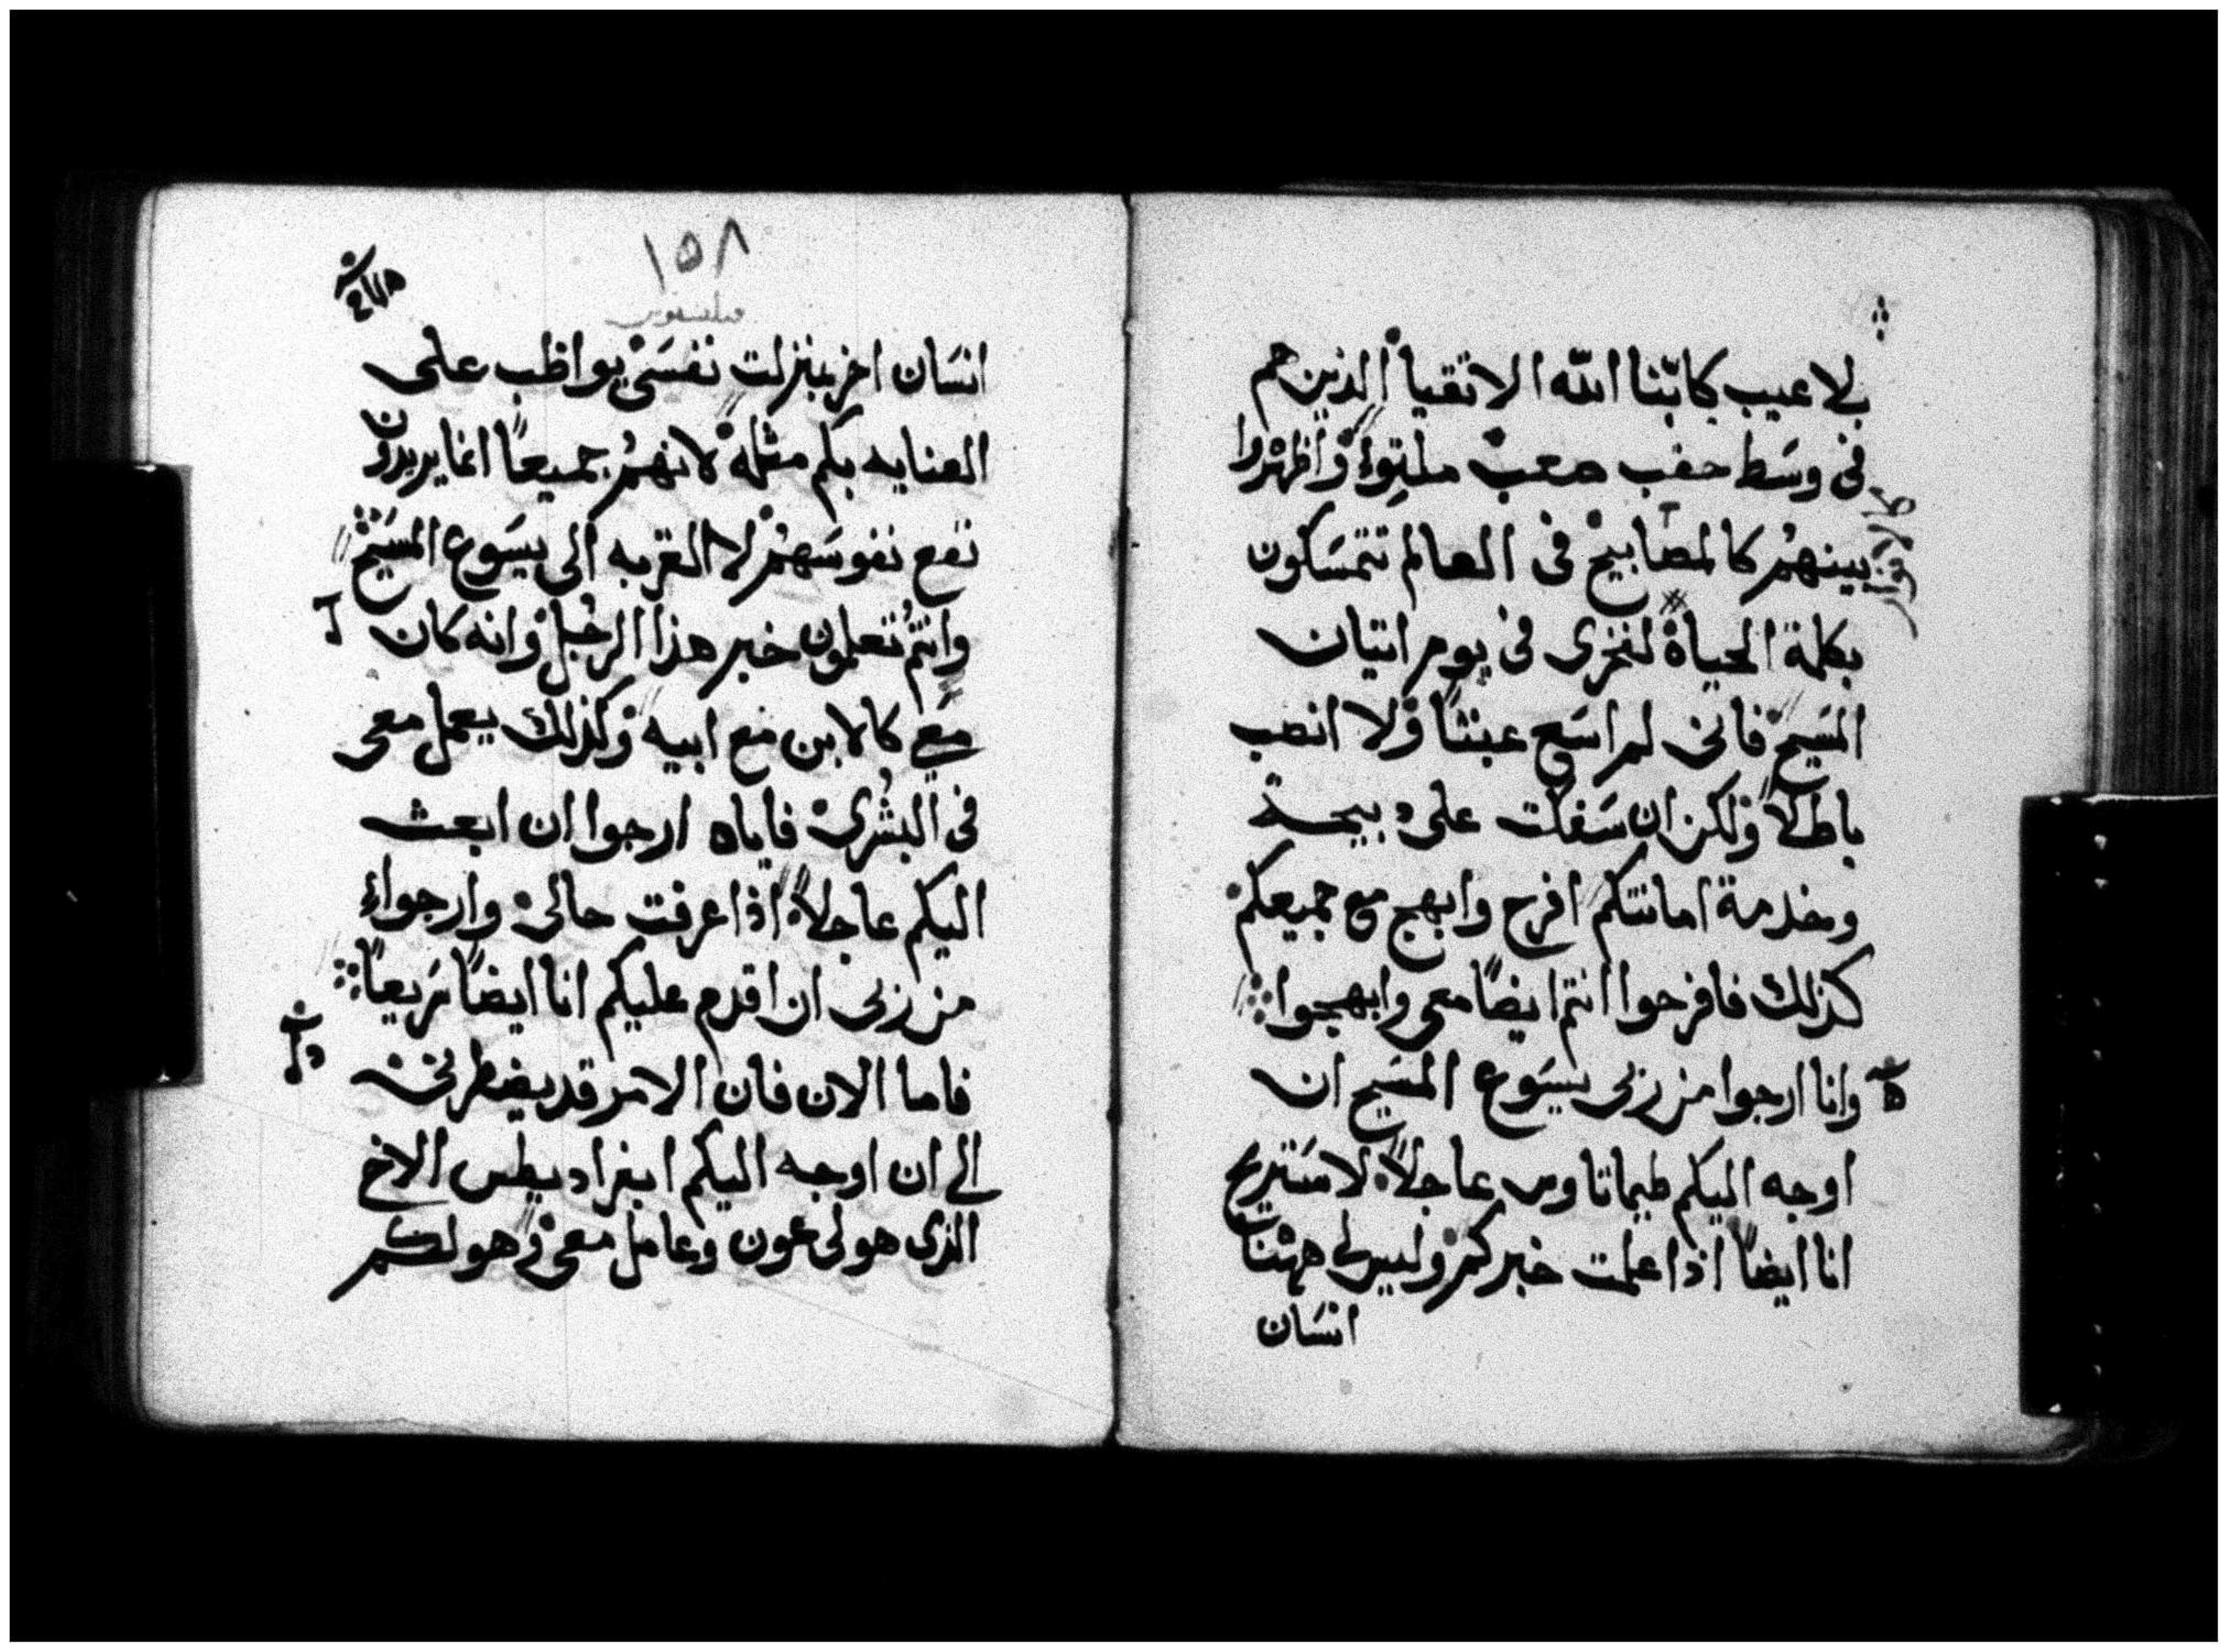 بلا عيب كابنا الله الاتقيا الذين هم
فى وسط حقب صعب ملتوء واظهروا
بينهم كالمصابيح فى العالم تتمسكون
بكلمة الحياة لفخرى فى يوم اتيان
المسيح فانى لم اسع عبثا ولا انصب
باطلا ولكن ان سفكت على ذبيحة
وخدمة امانتكم افرح وابهج مع جميعكم
كذلك فافرحوا انتم ايضا معى وابهجوا
وانا ارجوا من ربى يسوع المسيح ان
اوجه اليكم طيماتاوس عاجلا لاستريح
انا ايضا اذا علمت خبركم وليس لى ههنا
انسان
١٥٨
انسان اخر بنزلت نفسى يواظب على
العنايه بكم مثله لانهم جميعا انما يريدون
نفع نفوسهم لا القربه الى يسوع المسيح
وانتم تعلمون خبر هذا الرجل وانه كان
معى كالابن مع ابيه وكذلك يعمل معى
فى البشرى فاياه ارجوا ان ابعث
اليكم عاجلا اذا عرفت حالى وارجواء
من ربى ان اقدم عليكم انا ايضا سريعا
فاما الان فان الامر قد يضطرنى
الى ان اوجه اليكم ابفراديطس الاخ
الذى هو لى عون وعامل معى وهو لكم